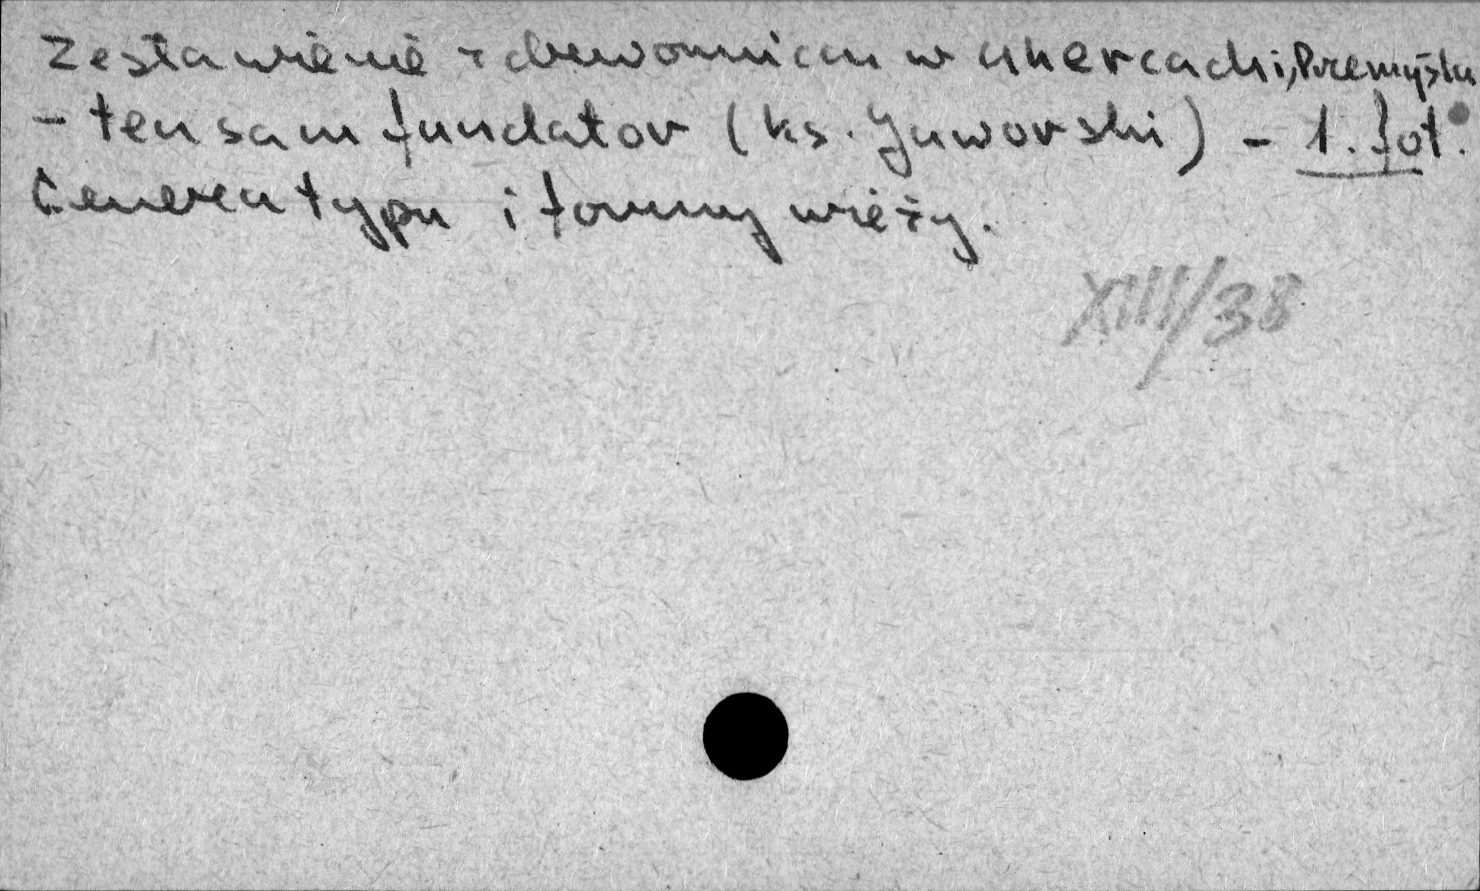 Zestawienie z dzwonnicą w Uhercach i Przemyślu
- ten sam fundator (ks. Jaworski) - 1. fot.
Geneza typu i formy wieży.
XIII/38